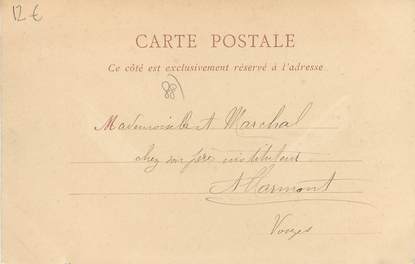 12 €
CARTE POSTALE
Ce côté est exclusivement réservé à l'adresse
88)
Mademoiselle A Marchal
chez son père instituteur
Allarmont
Vosges